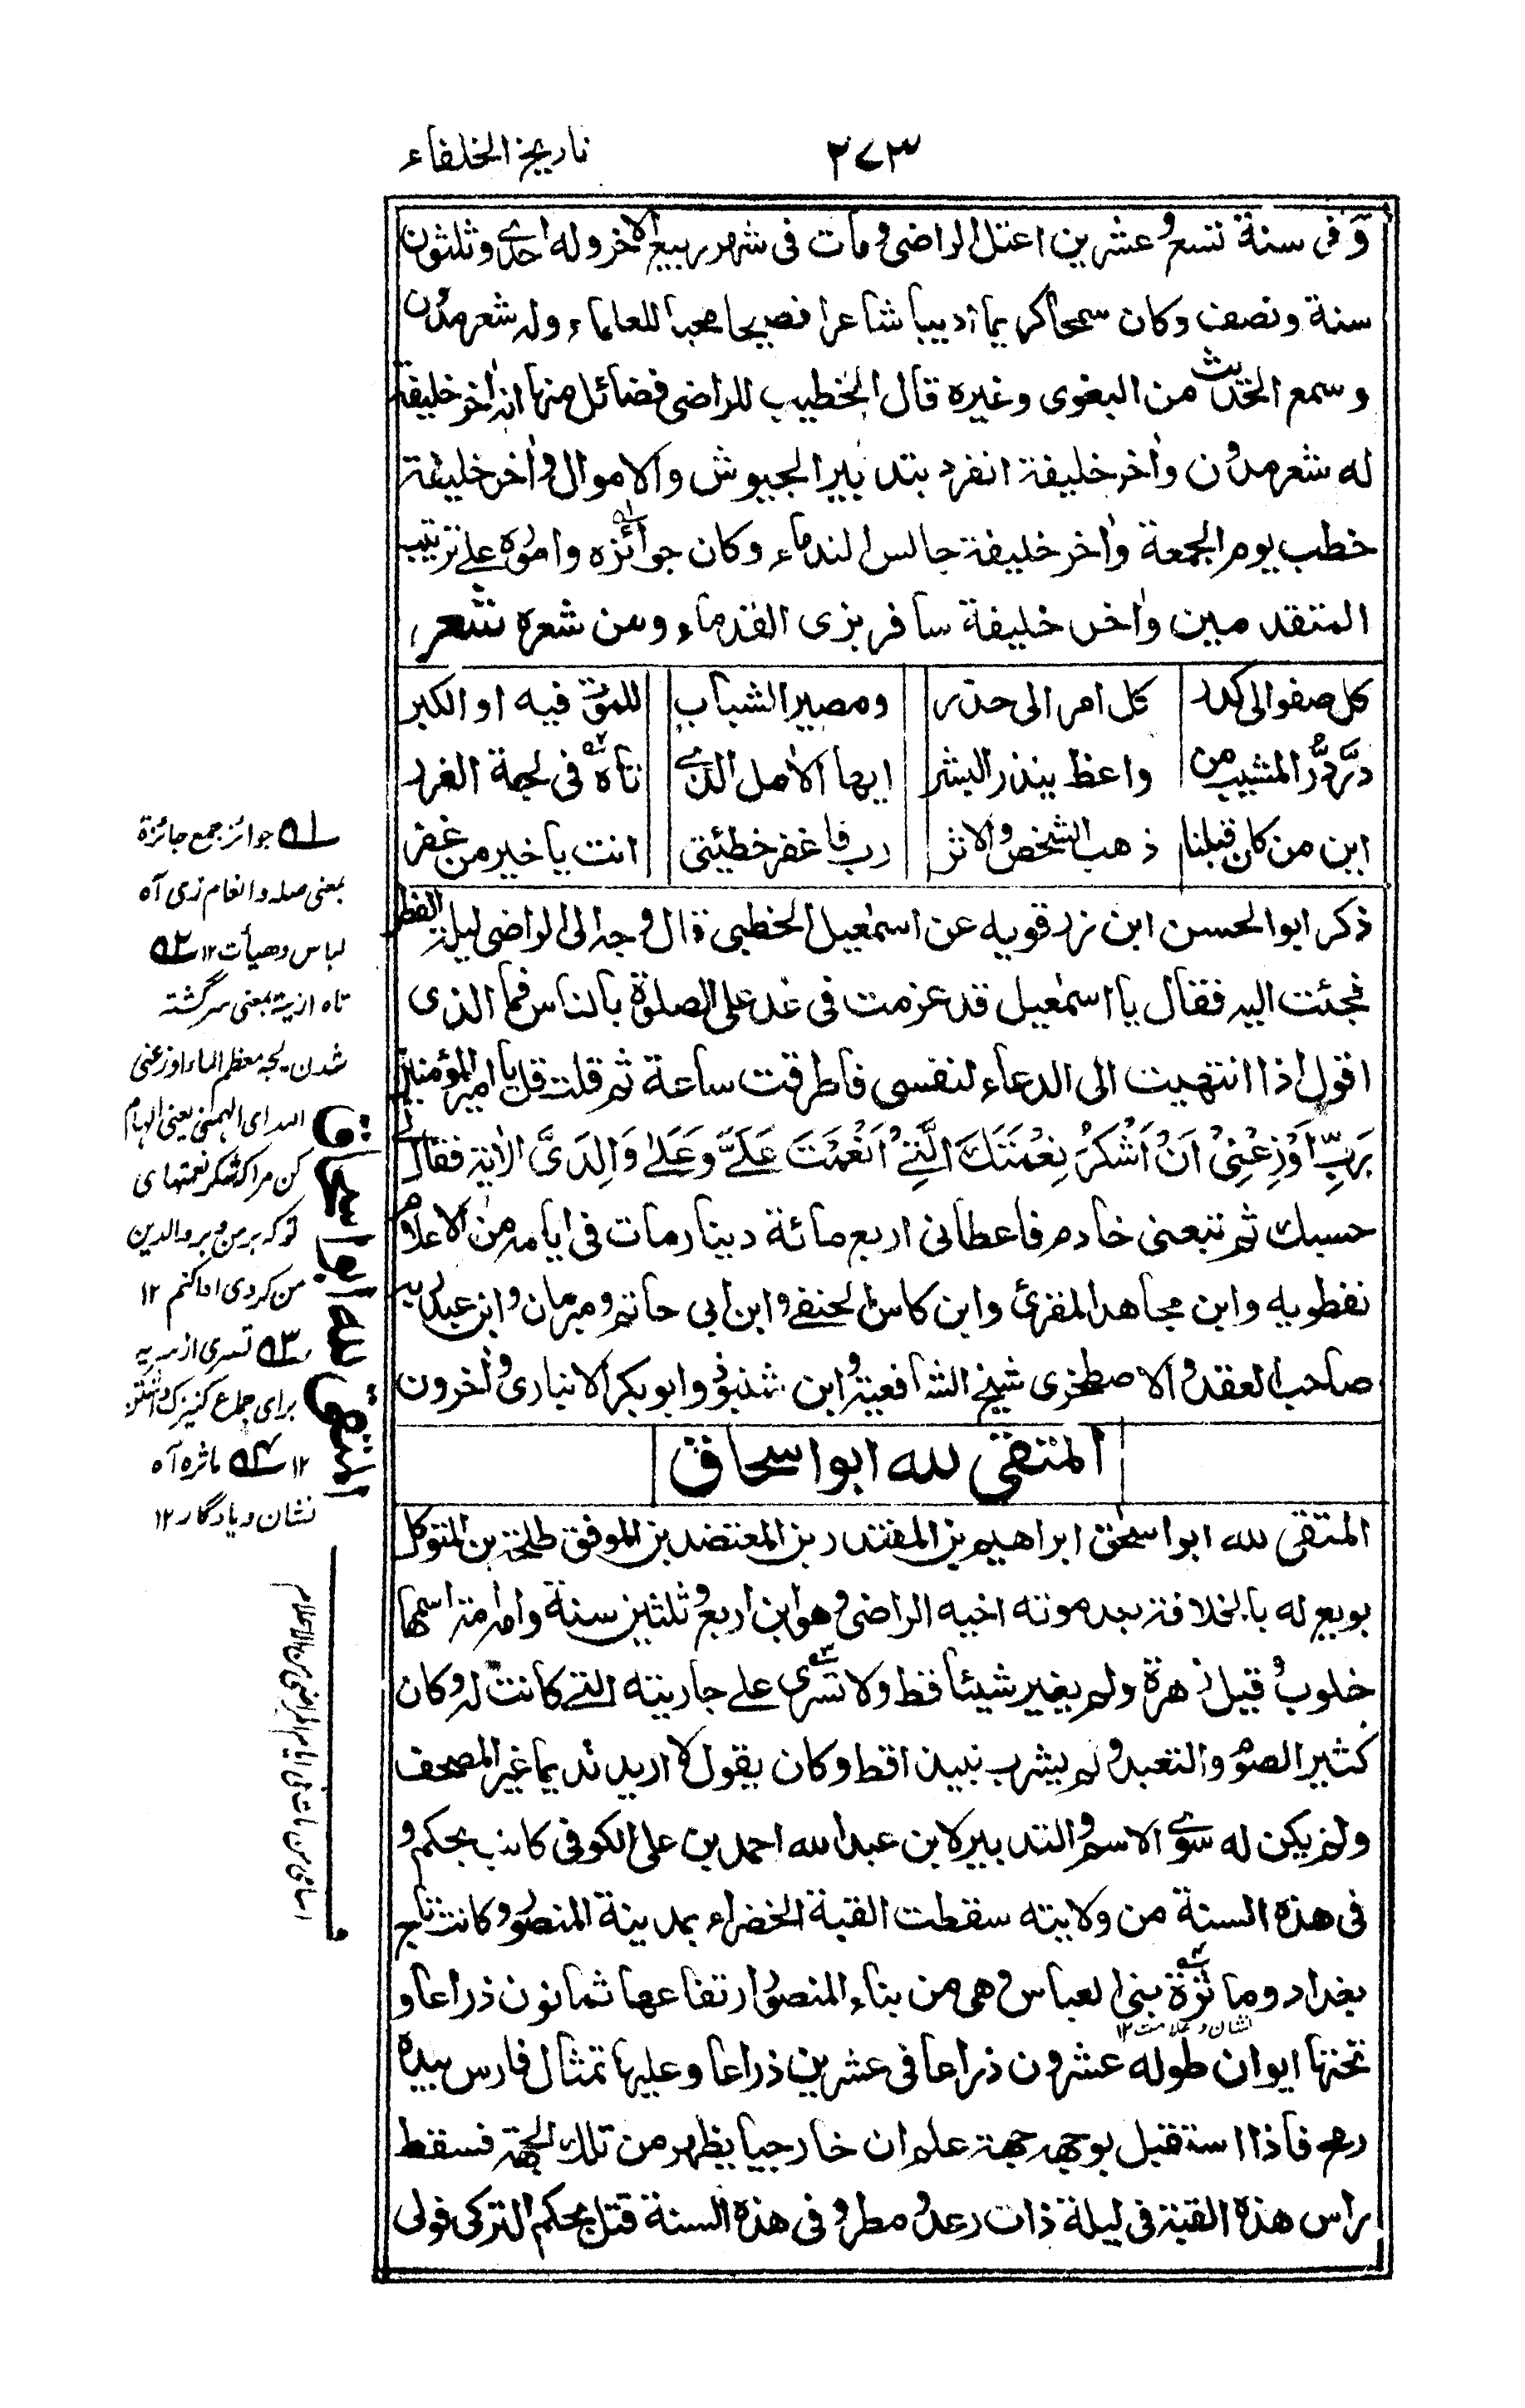 ٢٧٣
تاريخ الخلفاء
وفى سنة تسع وعشرين اعتل الراضى ومات فى شهر ربيع الاخر وله احدى وثلثون
سنة ونصف وكان سمحا كريما اديبا شاعرا فصيحا محبا للعلماء وله شعر مدون
وسمع الحديث من البغوى وغيره قال الخطيب للراضى فضائل منها انه اٰخر خليفة
له شعر مدون واٰخر خليفة انفرد بتدبير الجيوش والاموال واٰخر خليفة
خطب يوم الجمعة واٰخر خليفة جالس الندماء وكان جوائزه واموره على ترتيب
المتقدمين واٰخر خليفة سافر بزى القدماء ومن شعره شعر
كل صفو الى كدر كل امر الى حذر ومصير الشباب للموت فيه او الكبر
درّ درّ المشيب من واعظ ينذر البشر ايها الاٰمل الذى تاه فى لجة الغرر
اين من كان قبلنا ذهب الشخص والاثر رب فاغفر خطيئتى انت يا خير من غفر
ذكر ابو الحسن ابن زرقويه عن اسمٰعيل الخطبى قال وجه الى الراضى ليلة الفطر
فجئت اليه فقال يا اسمٰعيل قد عزمت فى غد على الصلوة بالناس فما الذى
اقول اذا انتهيت الى الدعاء لنفسى فاطرقت ساعة ثم قلت قل يا امير المؤمنين
رَبِّ اَوْزِعْنِىْ اَنْ اَشْكُرَ نِعْمَتَكَ الَّتِىْ اَنْعَمْتَ عَلَىَّ وَعَلٰى وَالِدَىَّ الاٰية فقال لى
حسبك ثم تبعنى خادم فاعطانى اربع مائة دينار مات فى ايامه من الاعلام
نفطويه وابن مجاهد المقرئ وابن كاس الحنفى وابن ابى حاتم ومبرمان وابن عبد ربه
صاحب العقد والاصطخرى شيخ الشافعية وابن شنبوذ وابو بكر الانبارى واٰخرون
المتقى لله ابو اسحاق
المتقى لله ابو اسحٰق ابراهيم بن المقتدر بن المعتضد بن الموفق طلحة بن المتوكل
بويع له بالخلافة بعد موته اخيه الراضى وهو ابن اربع وثلثين سنة وامه امة اسمها
خلوب وقيل زهرة ولم يغير شيئا قط ولا تسرى على جاريته التى كانت له وكان
كثير الصوم والتعبد ولم يشرب نبيذا قط وكان يقول لا اريد نديما غير المصحف
ولم يكن له سوى الاسم والتدبير لابن عبد الله احمد بن على الكوفى كاتب بجكم و
فى هذه السنة من ولايته سقطت القبة الخضراء بمدينة المنصور وكانت تاج
بغداد وماثرة بنى العباس وهى من بناء المنصور ارتفاعها ثمانون ذراعا و
نشان وعلامت ١٢
تحتها ايوان طوله عشرون ذراعا فى عشرين ذراعا وعليها تمثال فارس بيده
رمح فاذا استقبل بوجهه جهة علم ان خارجيا يظهر من تلك الجهة فسقط
راس هذه القبة فى ليلة ذات رعد ومطر وفى هذه السنة قتل بجكم التركى فولى
لـه١ جوائز جمع جائزة
بمعنى صله وانعام زى آه
لباس وهيأت ١٢ لـه٢
تاه از تيه بمعنى سرگشته
شدن لجه معظم الماء اوزعنى
اى الهمنى يعنى الهام
كن مرا كه شكر نعمتهاى
تو كه بر من وبر والدين
من كردى ادا كنم ١٢
لـه٣ تسرى از سريه
براى جماع كنيزك داشتن
١٢ لـه٤ ماثره آه
نشان ويادگار ١٢
المتقى لله ابو اسحاق